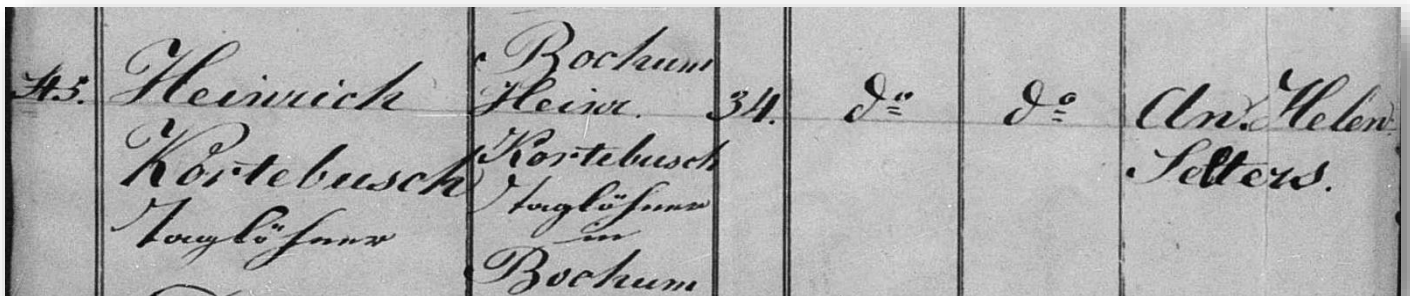 45.
Heinrich
Kortebusch
Taglöhner
Bochum
Heinr.
Kortebusch
Taglöhner
in
Bochum
34.
do
do
An. Helen.
Selters.